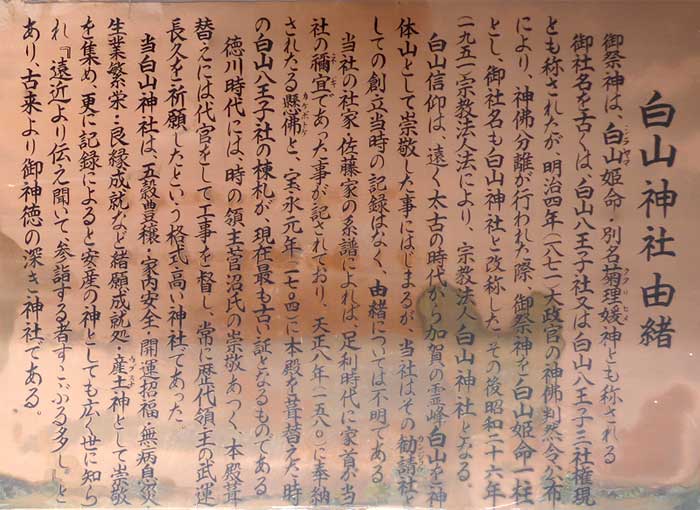 白山神社由緒
御祭神は、白山姫命・別名菊理媛神とも称される
シラヤマ
ククリ ヒメ
御社名を古くは、白山八王子社又は、白山八王子三社権現
とも称されたが、明治四年(一八七一)大政官の神佛判然令公布
により、神佛分離が行われた際、御祭神を白山姫命一柱
とし、御社名も白山神社と改称した。その後昭和二十六年
(一九五一)宗教法人法により、宗教法人白山神社となる。
白山信仰は、遠く太古の時代から加賀の霊峰白山を神
体山として崇敬した事にはじまるが、当社はその勧請社と
しての創立当時の記録はなく、由緒については不明である
当社の社家・佐藤家の系譜によれば、足利時代に家首が当
社の禰宜であった事が記されており、天正八年(一五八〇)に奉納
ネギ
されたる懸佛と、宝永元年(一七〇四)に本殿を葺替えた時
カケボトケ
の白山八王子社の棟札が、現在最も古い証となるものである
徳川時代には、時の領主菅沼氏の崇敬あつく、本殿葺
替えには代官をして工事を督し、常に歴代領主の武運
長久を祈願したという格式高い神社であった
当白山神社は、五穀豊穣・家内安全・開運招福・無病息災・
生業繁栄・良縁成就など諸願成就処・産土神として崇敬
ウブスナ
を集め、更に記録によると安産の神としても広く世に知ら
れ『遠近より伝え聞いて、参詣する者すこぶる多し。』と
あり、古来より御神徳の深き神社である。